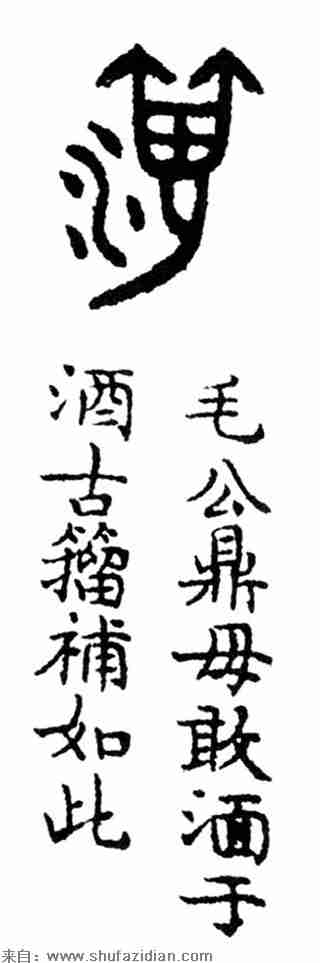 毛公鼎毋敢湎于
酒古籀補如此
来自：www.shufazidian.com